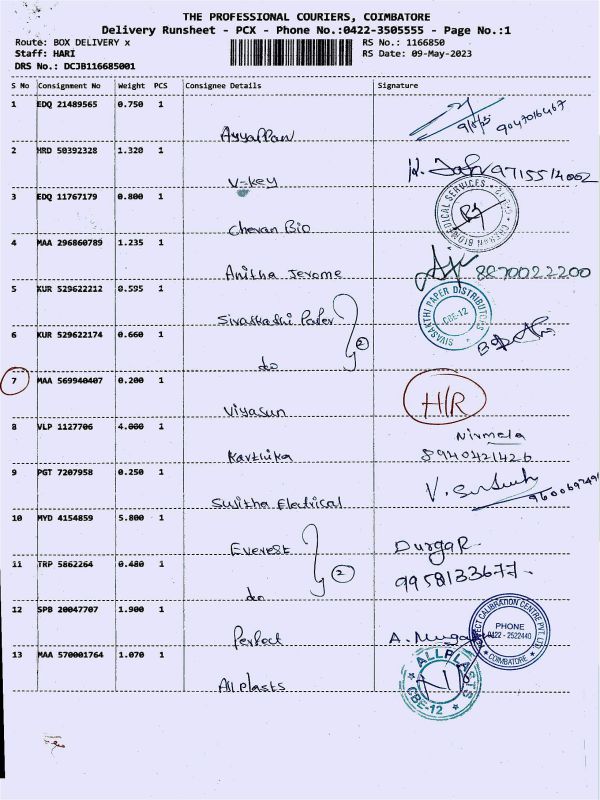 THE PROFESSIONAL COURIERS, COIMBATORE
Delivery Runsheet - PCX - Phone No.:0422-3505555 - Page No.:1
Route: BOX DELIVERY x RS No.: 1166850
Staff: HARI RS Date: 09-May-2023
DRS No.: DCJB116685001
S No Consignment No Weight PCS Consignee Details Signature
1 EDQ 21489565 0.750 1
Ayyappan 9047016467
2 HRD 50392328 1.320 1
V-key 9715514002
3 EDQ 11767179 0.800 1
Chevan Bio
4 MAA 296860789 1.235 1
Anitha Jerome 8870022200
5 KUR 529622212 0.595 1
Sivashakthi Paper SIVASAKTHI PAPER DISTRIBUTORS CBE-12
6 KUR 529622174 0.660 1
do 2
7 MAA 569940407 0.200 1
Viyasun H/R
8 VLP 1127706 4.000 1
Nirmela
Karthika 8940421426
9 PGT 7207958 0.250 1
Sujitha Electrical
10 MYD 4154859 5.800 1
Everest Durga R
11 TRP 5862264 0.480 1
do 2 9958133677
12 SPB 20047707 1.900 1
Perfect A. Muruga
PERFECT CALIBRATION CENTRE PVT. LTD. PHONE 0422 - 2522440 COIMBATORE
13 MAA 570001764 1.070 1
All plasts ALLPLASTS CBE-12